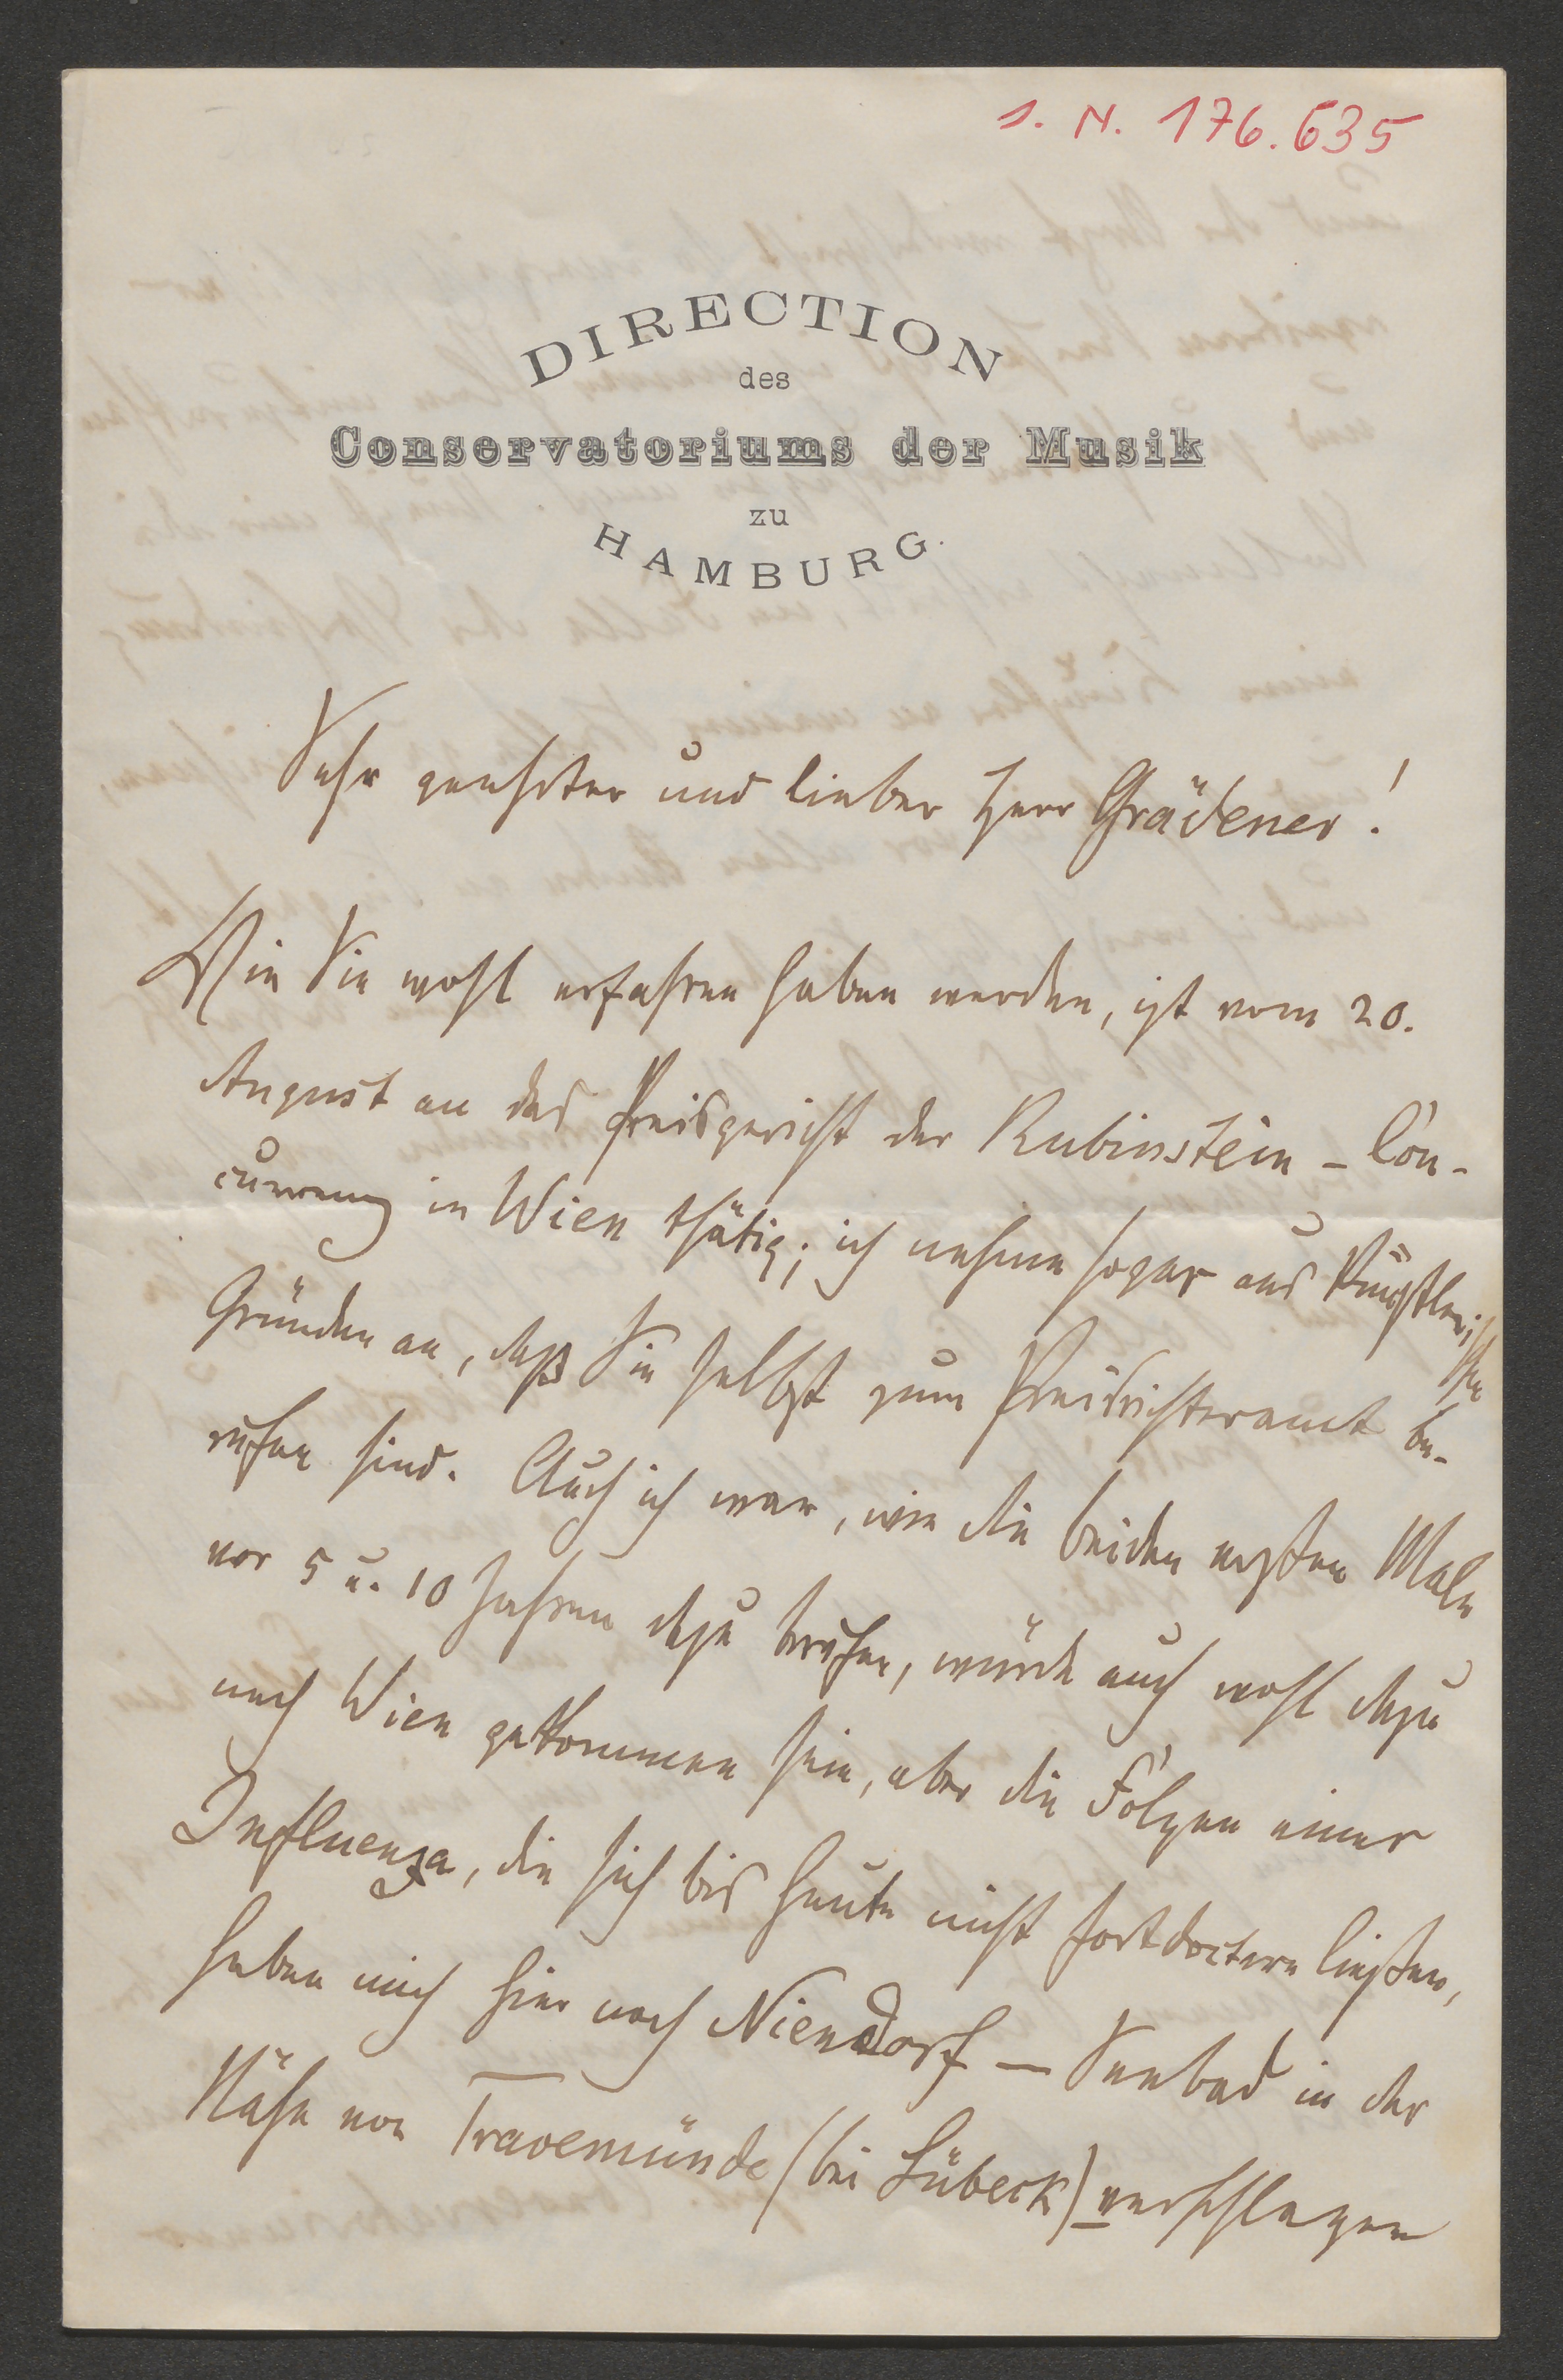 s. N. 176.635
DIRECTION
des
Conservatoriums der Musik
zu
HAMBURG.
Sehr geehrter und lieber Herr Grädener!
Wie Sie wohl erfahren haben werden, ist vom 20.
August an das Preisgericht der Rubinstein-Con-
currenz in Wien thätig; ich nehme sogar aus künstlerischen
Gründen an, daß Sie selbst zum Preisrichteramt be-
rufen sind. Auch ich war, wie die beiden ersten Male
vor 5 u. 10 Jahren dazu berufen, würde auch wohl dazu
nach Wien gekommen sein, aber die Folgen einer
Influenza, die sich bis heute nicht fortdoctern ließen,
haben mich hier nach Niendorf — Seebad in der
Nähe von Travemünde (bei Lübeck) verschlagen